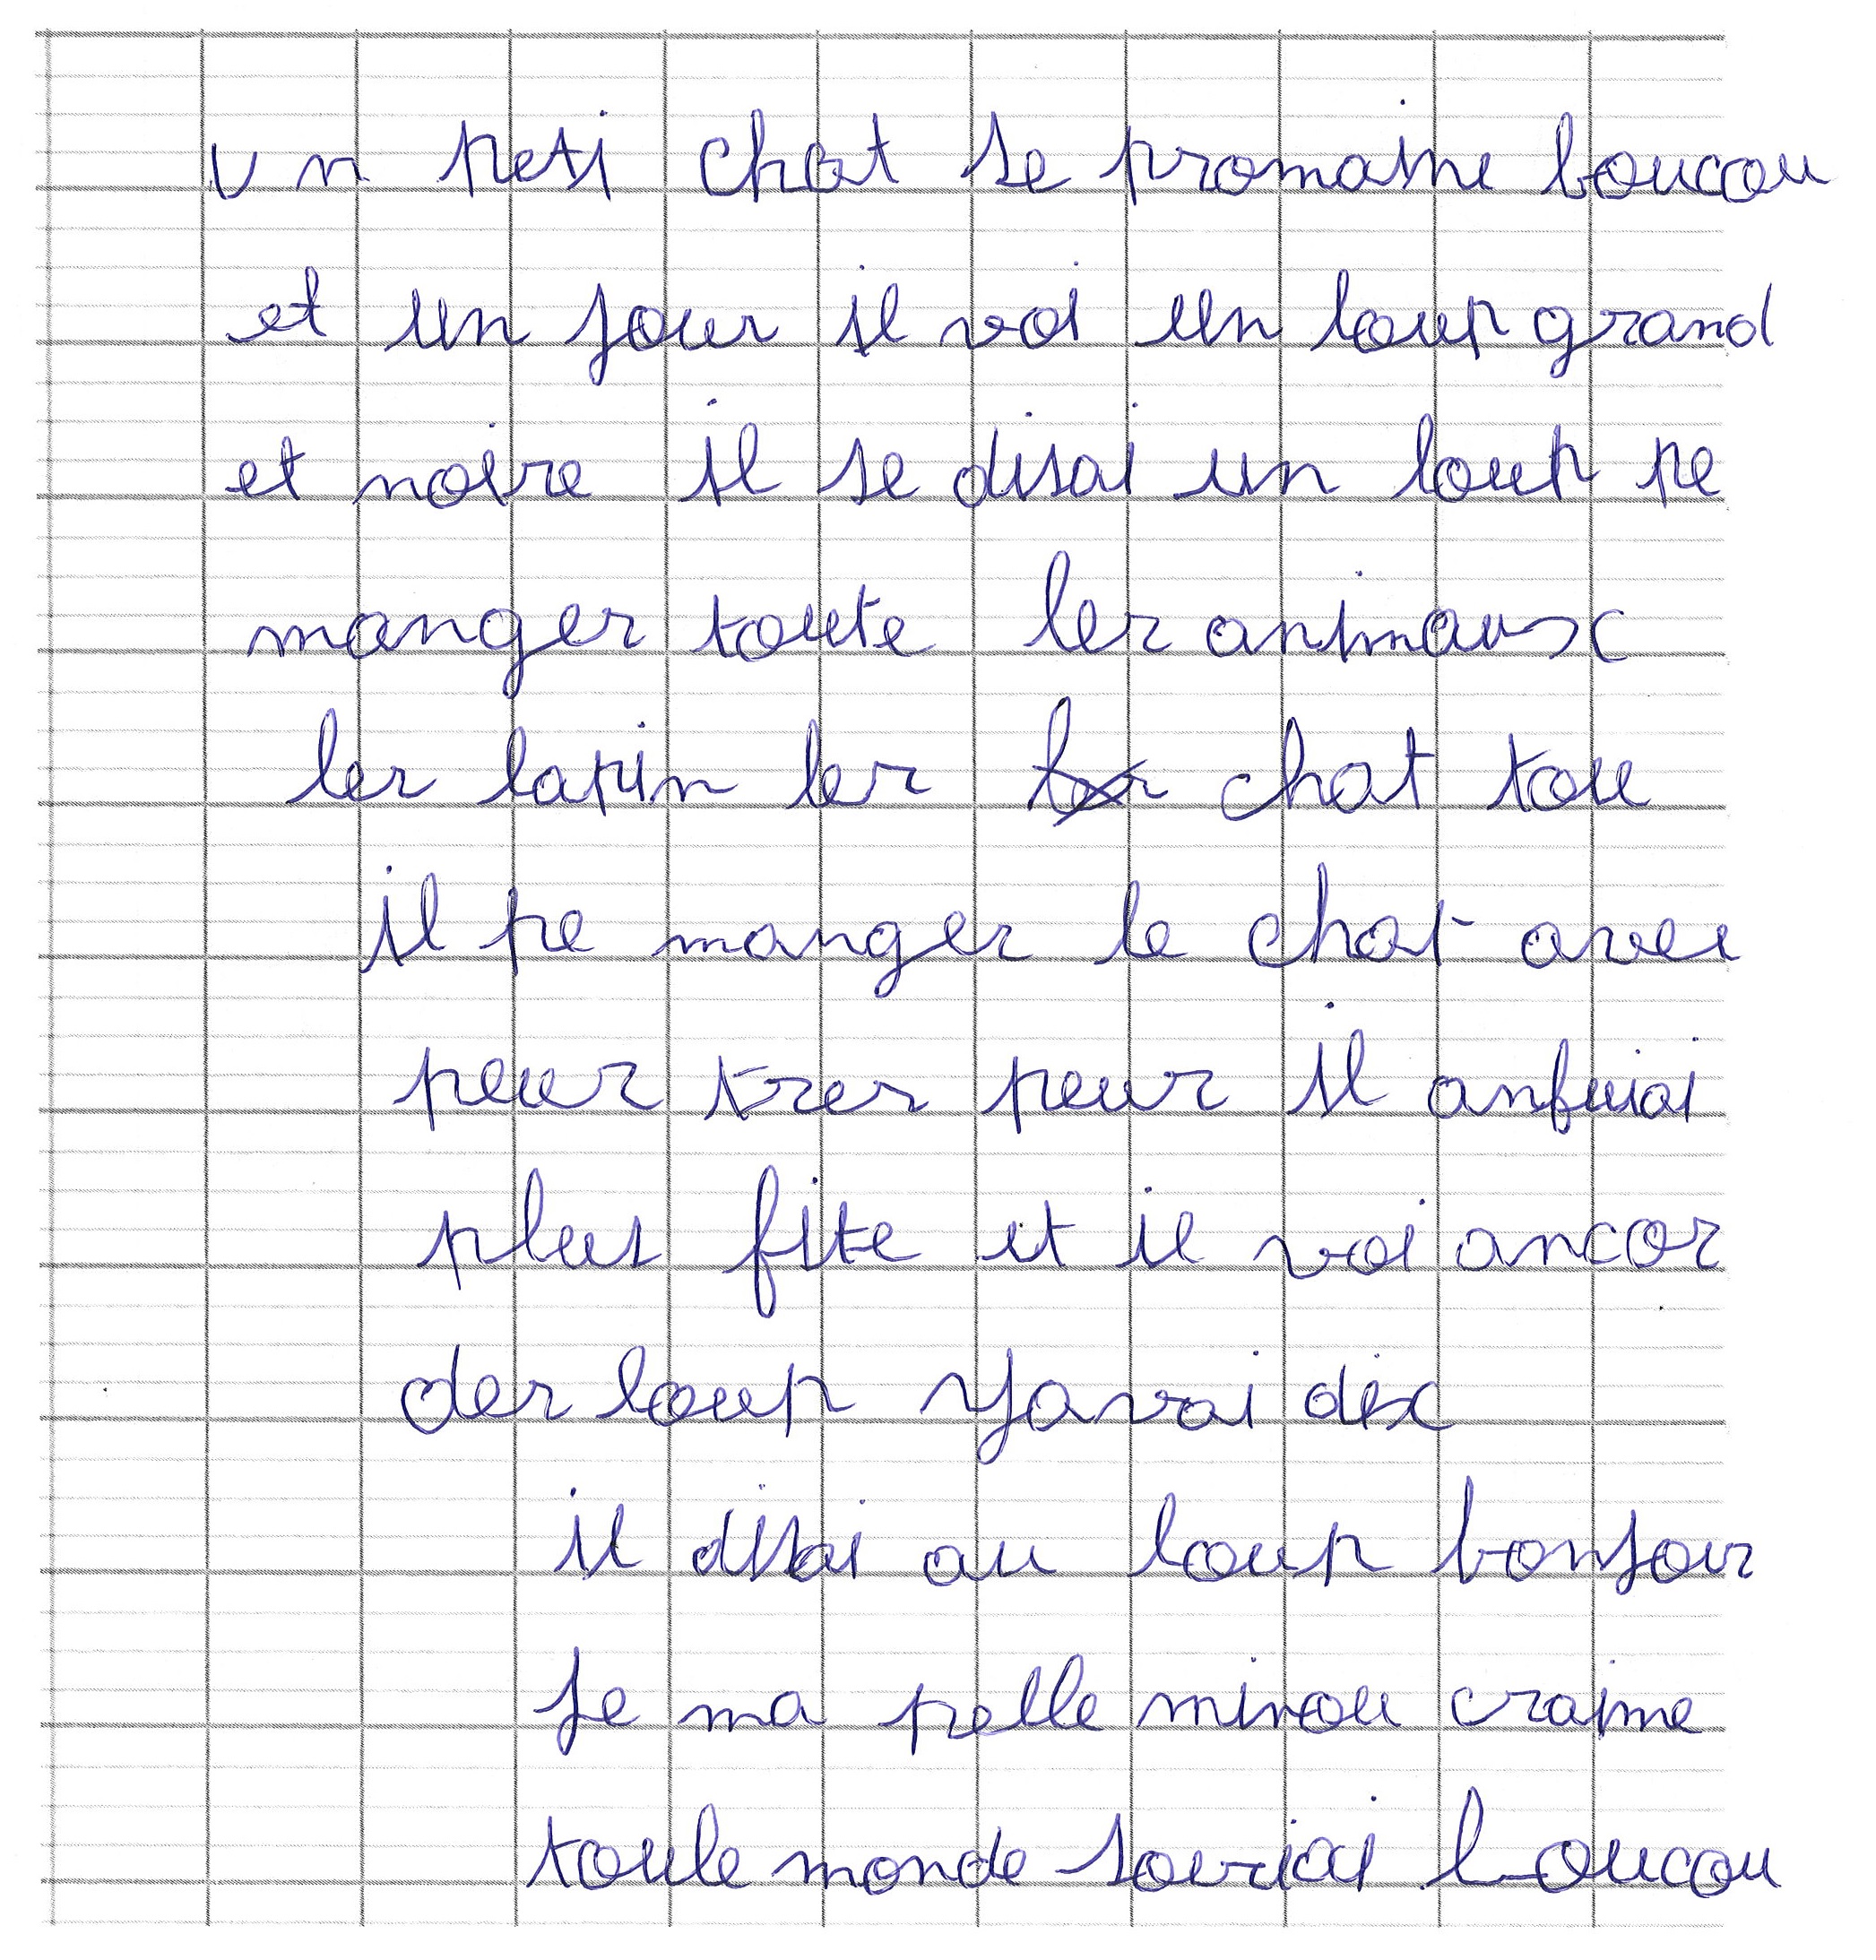 un peti chat se promaine boucou
et un jour il voi un loup grand
et noire il se disai un loup pe
manger toute les animaux
les lapin les les chat tou
il pe manger le chat avei
peur tres peur il anfuiai
plus fite et il voi ancor
des loup yavai dix
il disai au loup bonjour
je ma pelle minou craime
toule monde souriai boucou